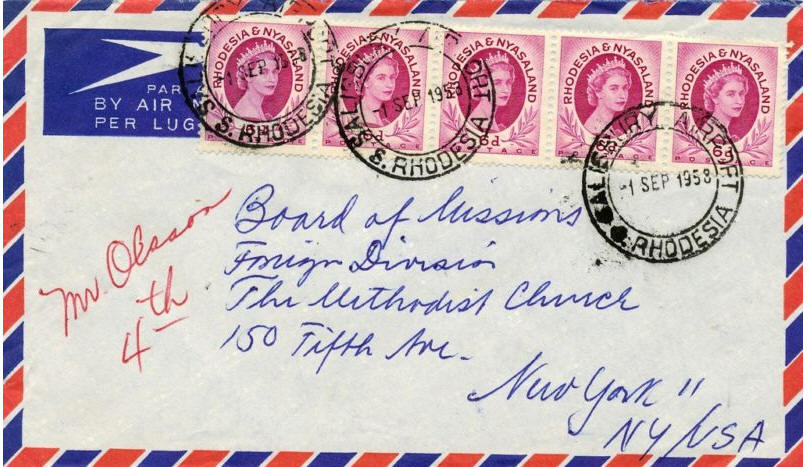 PAR A
BY AIR
PER LUG
RHODESIA & NYASALAND
RHODESIA & NYASALAND
RHODESIA & NYASALAND
RHODESIA & NYASALAND
RHODESIA & NYASALAND
6d
6d
POSTAGE
POSTAGE
POSTAGE
1 SEP 1958
S. RHODESIA
SALISBURY AIRPORT
-1 SEP 1958
S. RHODESIA
SALISBURY AIRPORT
-1 SEP 1958
S. RHODESIA
Mr. Olsson
4th
Board of Missions
Foreign Division
The Methodist Church
150 Fifth Ave.
New York 11
NY/USA